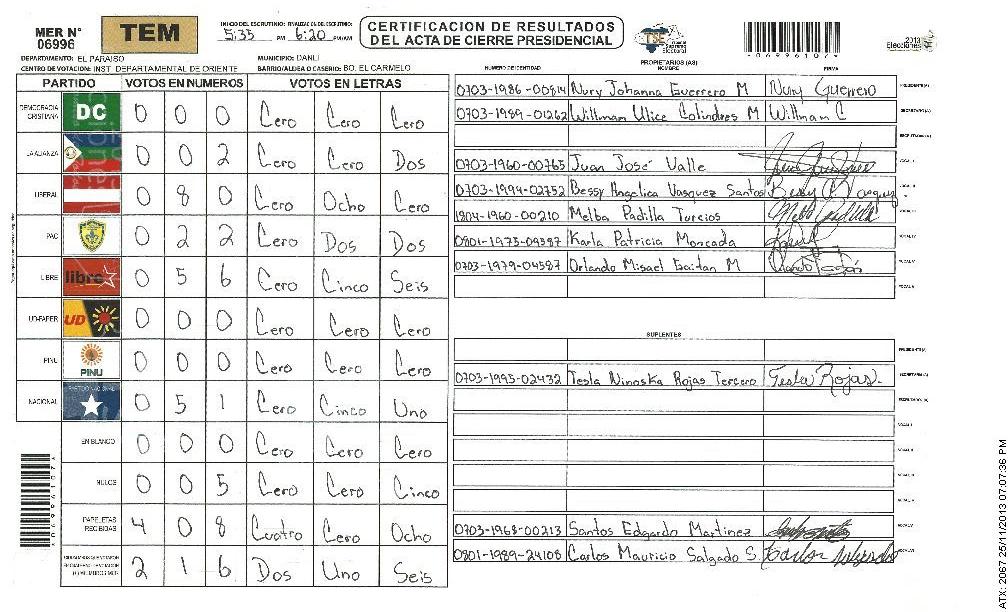 MER N° 06996
TEM
INICIO DEL ESCRUTINIO: 5:35 PM
FINALIZACION DEL ESCRUTINIO: 6:20 PM/AM
CERTIFICACION DE RESULTADOS DEL ACTA DE CIERRE PRESIDENCIAL
TSE Tribunal Supremo Electoral
2013 Elecciones
DEPARTAMENTO: EL PARAISO
MUNICIPIO: DANLÍ
CENTRO DE VOTACION: INST. DEPARTAMENTAL DE ORIENTE
BARRIO/ALDEA O CASERIO: BO. EL CARMELO
PARTIDO VOTOS EN NUMEROS VOTOS EN LETRAS
DEMOCRACIA CRISTIANA DC 0 0 0 Cero Cero Cero
LA ALIANZA 0 0 2 Cero Cero Dos
LIBERAL 0 8 0 Cero Ocho Cero
PAC 0 2 2 Cero Dos Dos
LIBRE libre 0 5 6 Cero Cinco Seis
UD-FAPER UD 0 0 0 Cero Cero Cero
PINU PINU 0 0 0 Cero Cero Cero
NACIONAL PARTIDO NACIONAL 0 5 1 Cero Cinco Uno
EN BLANCO 0 0 0 Cero Cero Cero
NULOS 0 0 5 Cero Cero Cinco
PAPELETAS RECIBIDAS 4 0 8 Cuatro Cero Ocho
2 1 6 Dos Uno Seis
PROPIETARIOS (AS)
NUMERO DE IDENTIDAD NOMBRE FIRMA
0703-1986-00814 Nury Johanna Guerrero M Nury Guerrero PRESIDENTE(A)
0703-1989-01262 Willman Ulice Colindres M Willman C SECRETARIO(A)
ESCRUTADOR(A)
0703-1960-00765 Juan José Valle VOCAL I
0703-1994-02752 Bessy Angelica Vasquez Santos Bessy Vasquez VOCAL II
1804-1960-00210 Melba Padilla Turcios Melba Padilla VOCAL III
0801-1975-09387 Karla Patricia Moncada VOCAL IV
0703-1979-04587 Orlando Misael Gaitan M VOCAL V
VOCAL VI
SUPLENTES
PRESIDENTE(A)
0703-1993-02432 Tesla Ninoska Rojas Tercero Tesla Rojas. SECRETARIO(A)
ESCRUTADOR(A)
VOCAL I
VOCAL II
VOCAL III
VOCAL IV
0703-1968-00213 Santos Edgardo Martinez VOCAL V
0801-1989-24108 Carlos Mauricio Salgado S. VOCAL VI
ATX: 2067 25/11/2013 07:07:36 PM